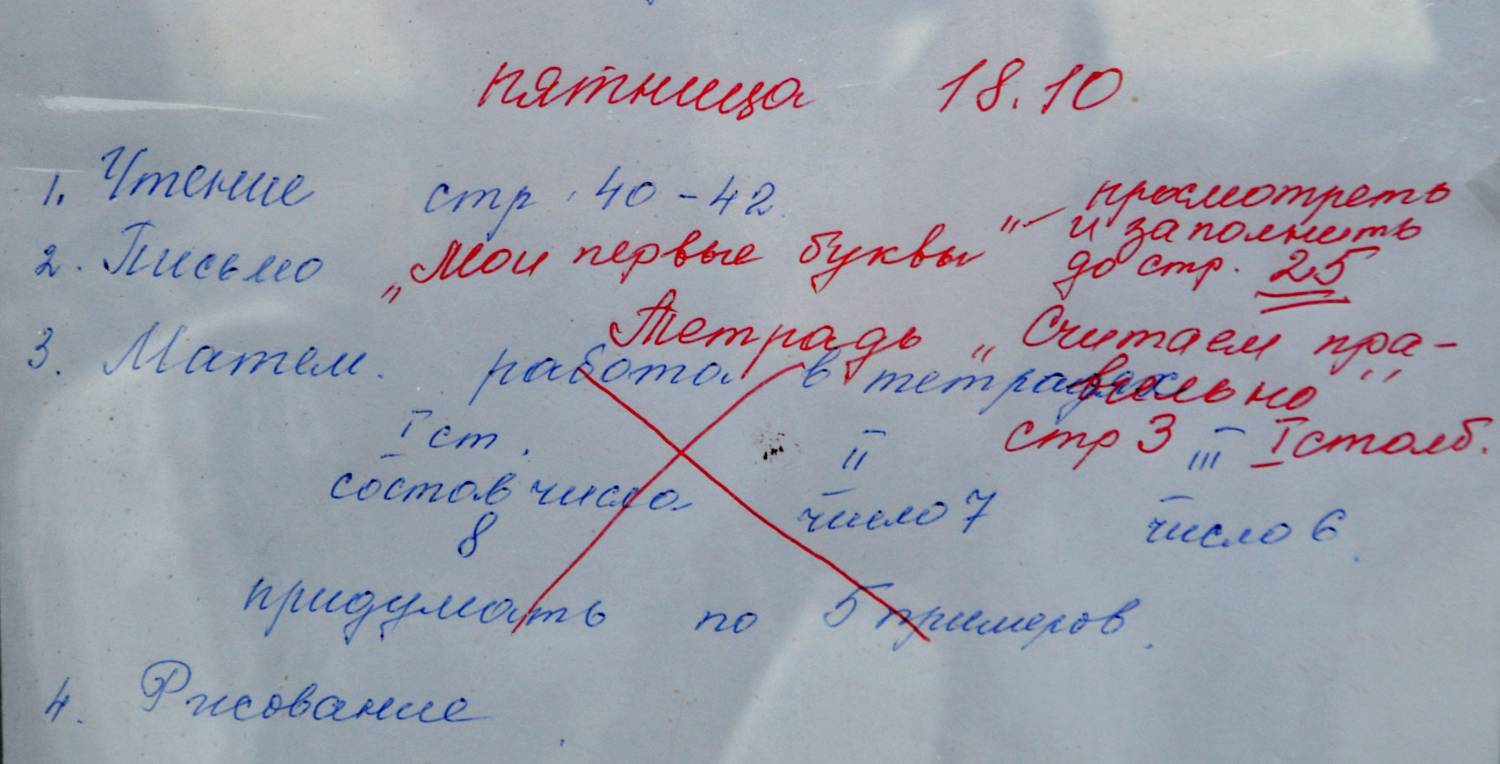 пятница 18.10
1. Чтение стр. 40-42
2. Письмо „Мои первые буквы" - просмотреть
и заполнить
до стр. 25
Тетрадь „Считаем пра-
вильно"
3. Матем. работа в тетрадях
стр 3 I столб.
I ст. II III
состав числа число 7 число 6
8
придумать по 5 примеров.
4. Рисование